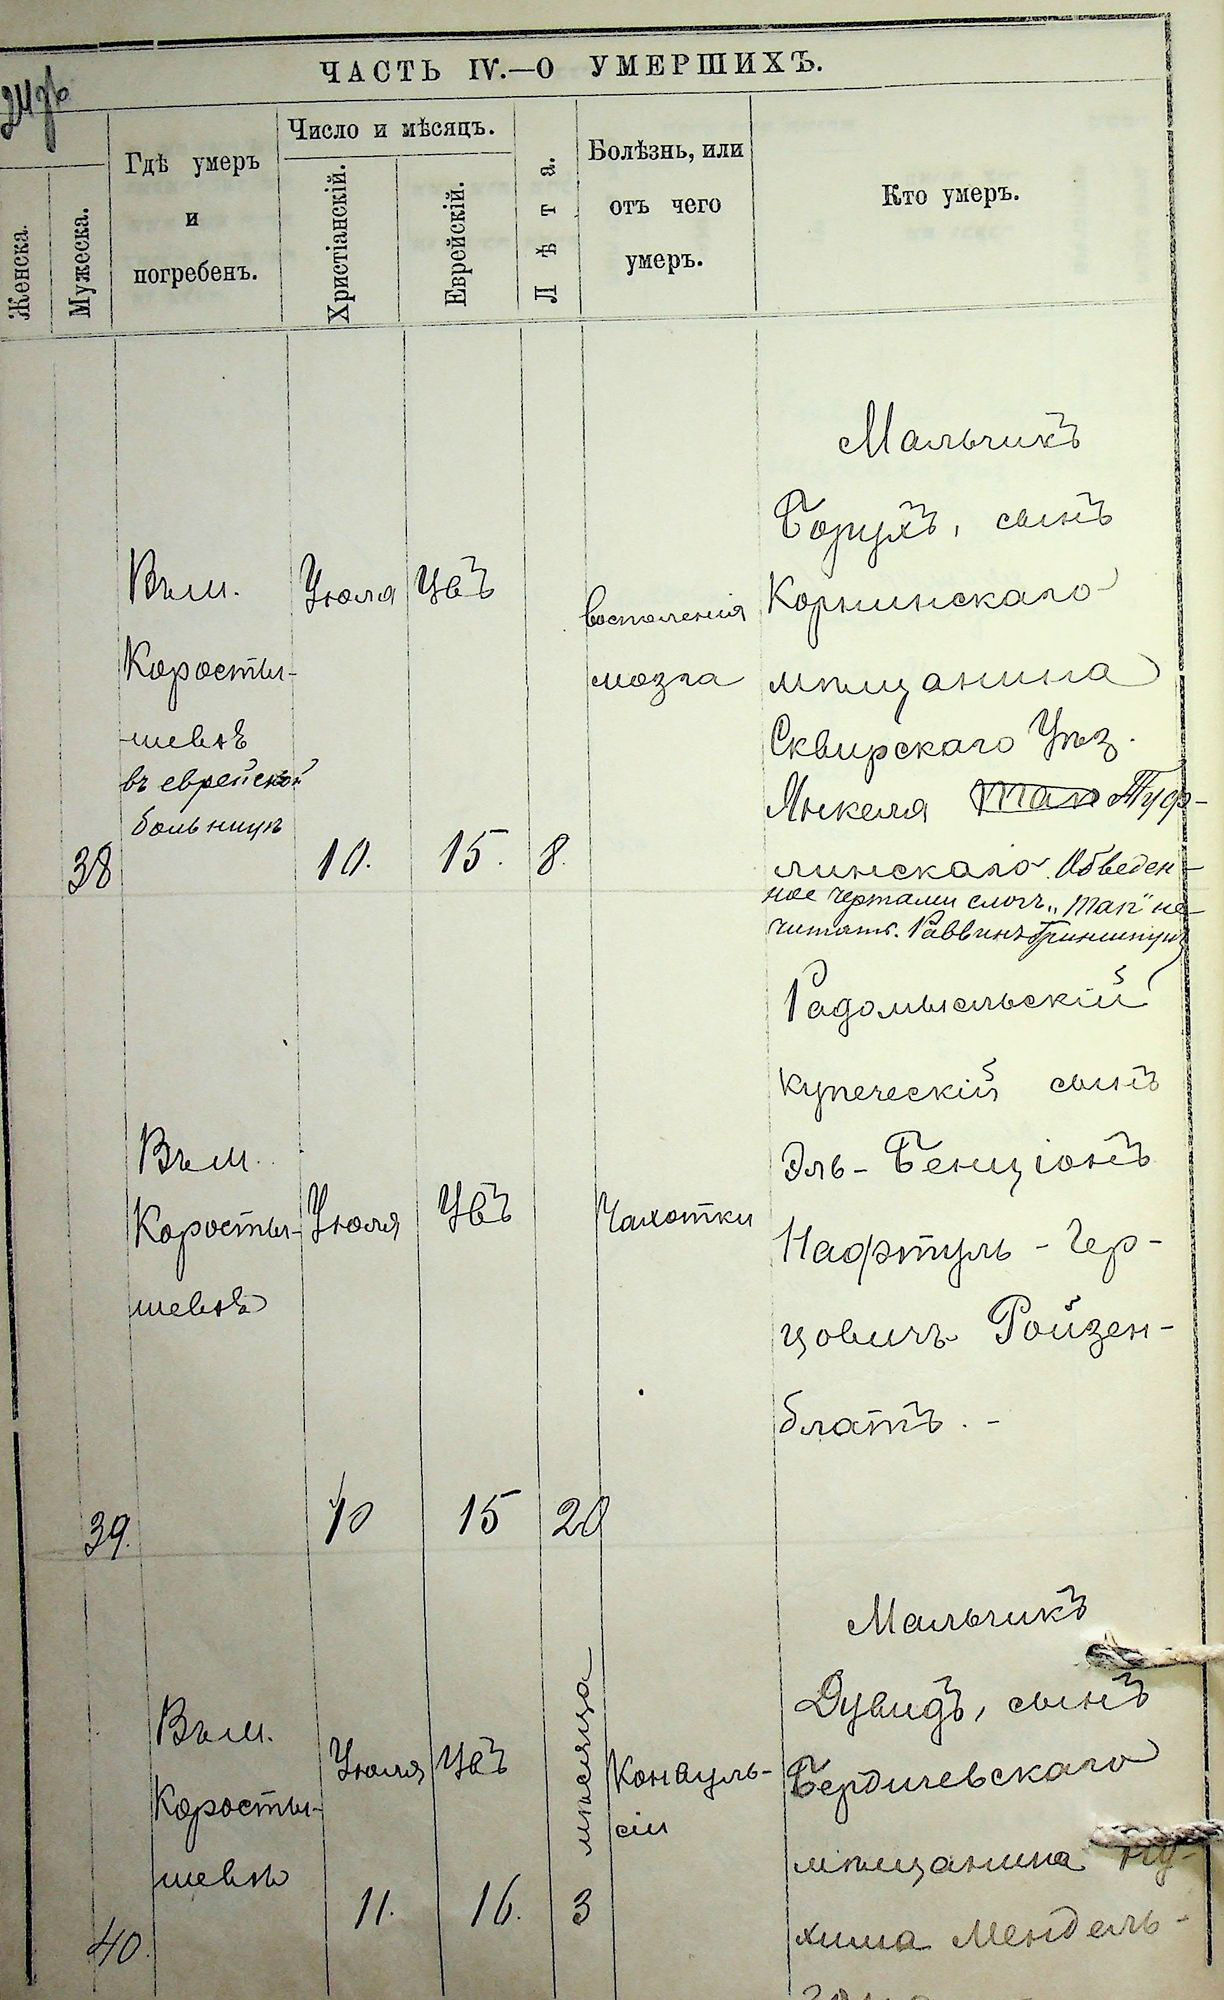 ЧАСТЬ IV.—О УМЕРШИХЪ.
Женска.
Мужеска.
Гдѣ умеръ
и
погребенъ.
Число и мѣсяцъ.
Христіанскій.
Еврейскій.
Лѣта.
Болѣзнь, или
отъ чего
умеръ.
Кто умеръ.
38
Въ м.
Коросты-
шевѣ
въ еврейской
больницѣ
Іюля
10.
Увъ
15.
8.
воспаленія
мозга
Мальчикъ
Борухъ, сынъ
Корнинскаго
мѣщанина
Сквирскаго Уѣз.
Янкеля Тап Туф-
линскаго. Обведен-
ное чертами слогъ „Тап" не
читать. Раввинъ
39.
Въ м.
Коросты-
шевѣ
Іюля
10
Увъ
15
20
Чахотки
Радомысльскій
купеческій сынъ
Эль-Бенціонъ
Нафтуль-Гер-
цовичъ Ройзен-
блатъ.-
40.
Въ м.
Коросты-
шевѣ
Іюля
11.
Увъ
16.
3
мѣсяца
Конвуль-
сіи
Мальчикъ
Дувидъ, сынъ
Бердичевскаго
мѣщанина Ну-
хима Мендель-